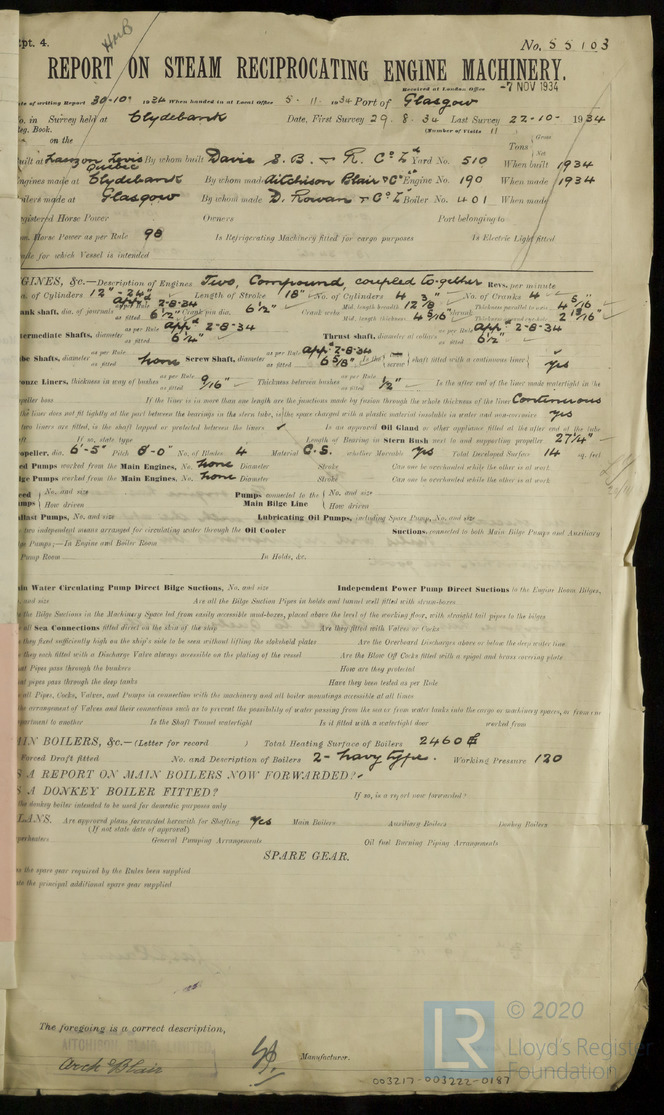 Rpt. 4.
No. 55103
REPORT ON STEAM RECIPROCATING ENGINE MACHINERY.
Received at London Office -7 NOV 1934
Date of writing Report 30-10- 1934 When handed in at Local Office 5-11-1934 Port of Glasgow
No. in Survey held at Clydebank Date, First Survey 29.8.34 Last Survey 22-10-1934
Reg. Book. (Number of Visits 11
on the Tons Gross Net
Built at Lauzon Levis Quebec By whom built Davie S.B. & R. Co Ld Yard No. 510 When built 1934
Engines made at Clydebank By whom made Aitchison Blair & Co Ld Engine No. 190 When made 1934
Boilers made at Glasgow By whom made D. Rowan & Co Ld Boiler No. 401 When made
Registered Horse Power Owners Port belonging to
Nom. Horse Power as per Rule 98 Is Refrigerating Machinery fitted for cargo purposes Is Electric Light fitted
Trade for which Vessel is intended
ENGINES, &c.—Description of Engines Two, Compound, coupled together Revs. per minute
Dia. of Cylinders 12"-24" Length of Stroke 18" No. of Cylinders 4 No. of Cranks 4
Crank shaft, dia. of journals as per Rule App'd 2-8-34 as fitted 6½" Crank pin dia. 6½" Crank webs Mid. length breadth 12⅜" Mid. length thickness 4 5/16" shrunk Thickness parallel to axis 4 5/16" Thickness around eye-hole 2 13/16"
Intermediate Shafts, diameter as per Rule App'd 2-8-34 as fitted 6¼" Thrust shaft, diameter at collars as per Rule App'd 2-8-34 as fitted 6½"
Tube Shafts, diameter as per Rule as fitted none Screw Shaft, diameter as per Rule App'd 2-8-34 as fitted 6⅝" Is the screw shaft fitted with a continuous liner yes
Bronze Liners, thickness in way of bushes as per Rule as fitted 9/16" Thickness between bushes as per Rule as fitted ½" Is the after end of the liner made watertight in the
propeller boss If the liner is in more than one length are the junctions made by fusion through the whole thickness of the liner Continuous
If the liner does not fit tightly at the part between the bearings in the stern tube, is the space charged with a plastic material insoluble in water and non-corrosive yes
If two liners are fitted, is the shaft lapped or protected between the liners Is an approved Oil Gland or other appliance fitted at the after end of the tube
shaft If so, state type Length of Bearing in Stern Bush next to and supporting propeller 27¼"
Propeller, dia. 6'-5" Pitch 8'-0" No. of Blades 4 Material C.S. whether Moveable yes Total Developed Surface 14 sq. feet
Feed Pumps worked from the Main Engines, No. none Diameter Stroke Can one be overhauled while the other is at work
Bilge Pumps worked from the Main Engines, No. none Diameter Stroke Can one be overhauled while the other is at work
Feed Pumps No. and size How driven Pumps connected to the Main Bilge Line No. and size How driven
Ballast Pumps, No. and size Lubricating Oil Pumps, including Spare Pump, No. and size
Are two independent means arranged for circulating water through the Oil Cooler Suctions, connected to both Main Bilge Pumps and Auxiliary
Bilge Pumps;—In Engine and Boiler Room
Pump Room In Holds, &c.
Main Water Circulating Pump Direct Bilge Suctions, No. and size Independent Power Pump Direct Suctions to the Engine Room Bilges,
No. and size Are all the Bilge Suction Pipes in holds and tunnel well fitted with strum-boxes
Are the Bilge Suctions in the Machinery Space led from easily accessible mud-boxes, placed above the level of the working floor, with straight tail pipes to the bilges
Are all Sea Connections fitted direct on the skin of the ship Are they fitted with Valves or Cocks
Are they fixed sufficiently high on the ship's side to be seen without lifting the stokehold plates Are the Overboard Discharges above or below the deep water line
Are they each fitted with a Discharge Valve always accessible on the plating of the vessel Are the Blow Off Cocks fitted with a spigot and brass covering plate
What Pipes pass through the bunkers How are they protected
What pipes pass through the deep tanks Have they been tested as per Rule
Are all Pipes, Cocks, Valves, and Pumps in connection with the machinery and all boiler mountings accessible at all times
Is the arrangement of Valves and their connections such as to prevent the possibility of water passing from the sea or from water tanks into the cargo or machinery spaces, or from one
compartment to another Is the Shaft Tunnel watertight Is it fitted with a watertight door worked from
MAIN BOILERS, &c.—(Letter for record ) Total Heating Surface of Boilers 2460
Forced Draft fitted No. and Description of Boilers 2- navy type. Working Pressure 120
IS A REPORT ON MAIN BOILERS NOW FORWARDED?
IS A DONKEY BOILER FITTED? If so, is a report now forwarded?
Is the donkey boiler intended to be used for domestic purposes only
PLANS. Are approved plans forwarded herewith for Shafting Yes Main Boilers Auxiliary Boilers Donkey Boilers
(If not state date of approval)
Superheaters General Pumping Arrangements Oil fuel Burning Piping Arrangements
SPARE GEAR.
Has the spare gear required by the Rules been supplied
State the principal additional spare gear supplied
The foregoing is a correct description,
AITCHISON BLAIR LIMITED
Arch G Blair Manufacturer.
© 2020
LR
Lloyd's Register
Foundation
003217-003222-0187